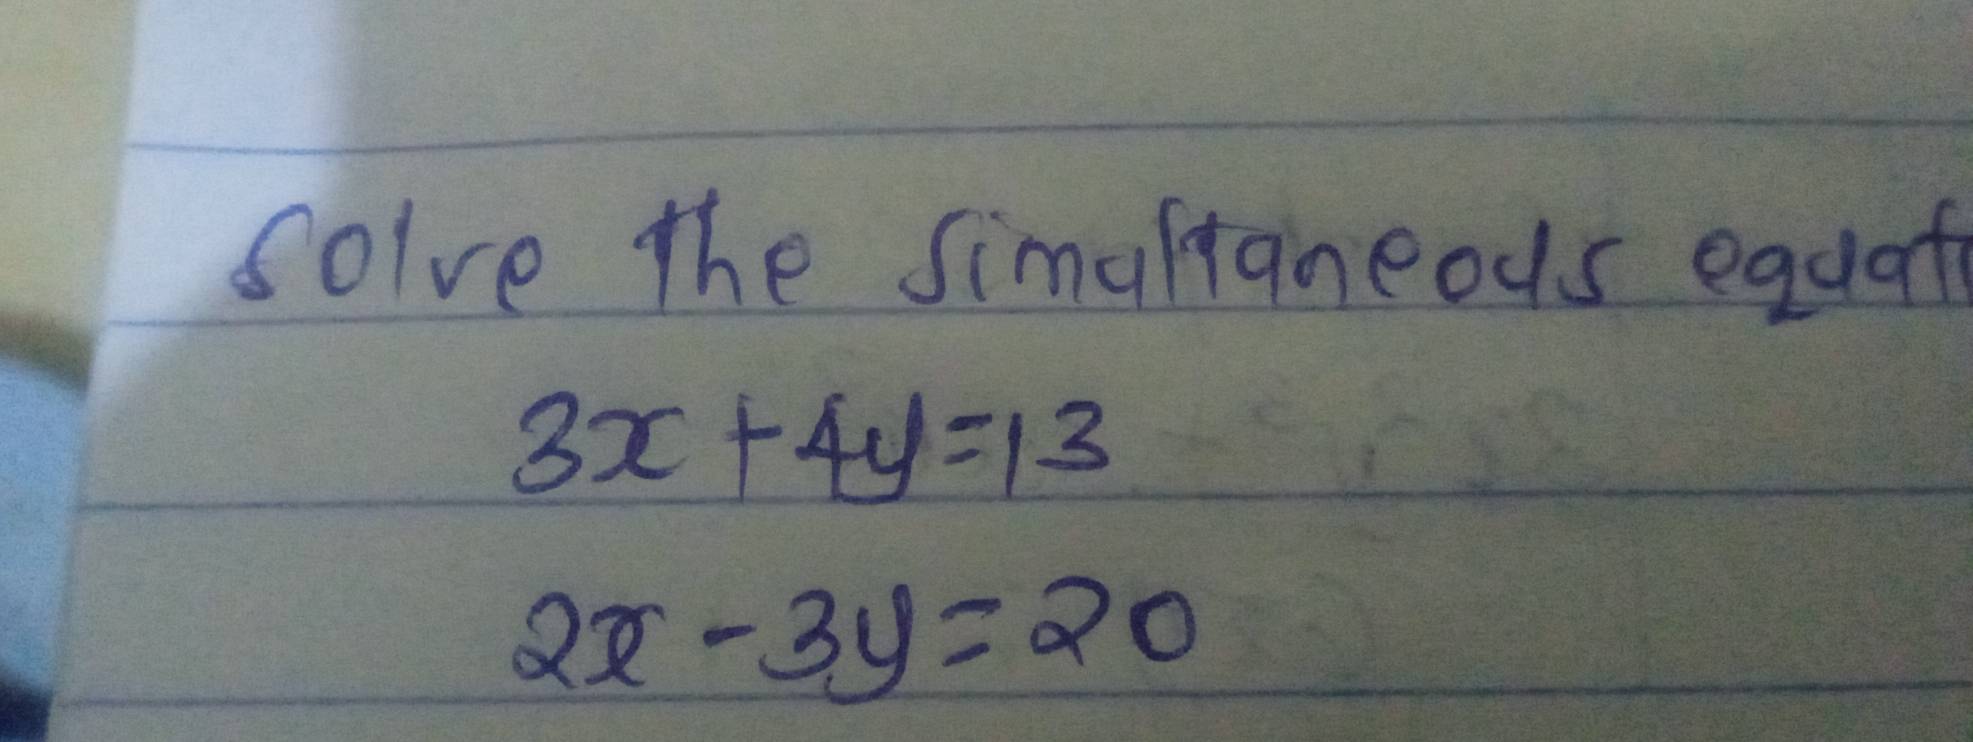 Solve the simultaneous equati
3x + 4y = 13
2x - 3y = 20